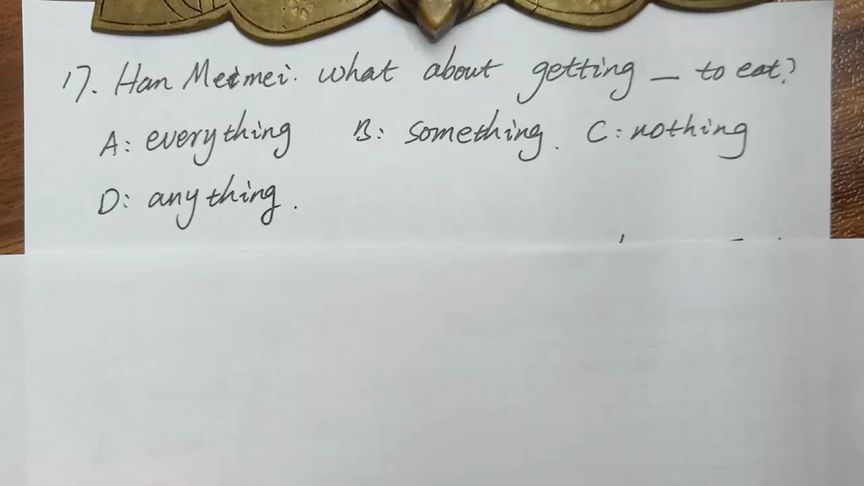 17. Han Meimei: what about getting — to eat?
A: everything B: something. C: nothing
D: anything.